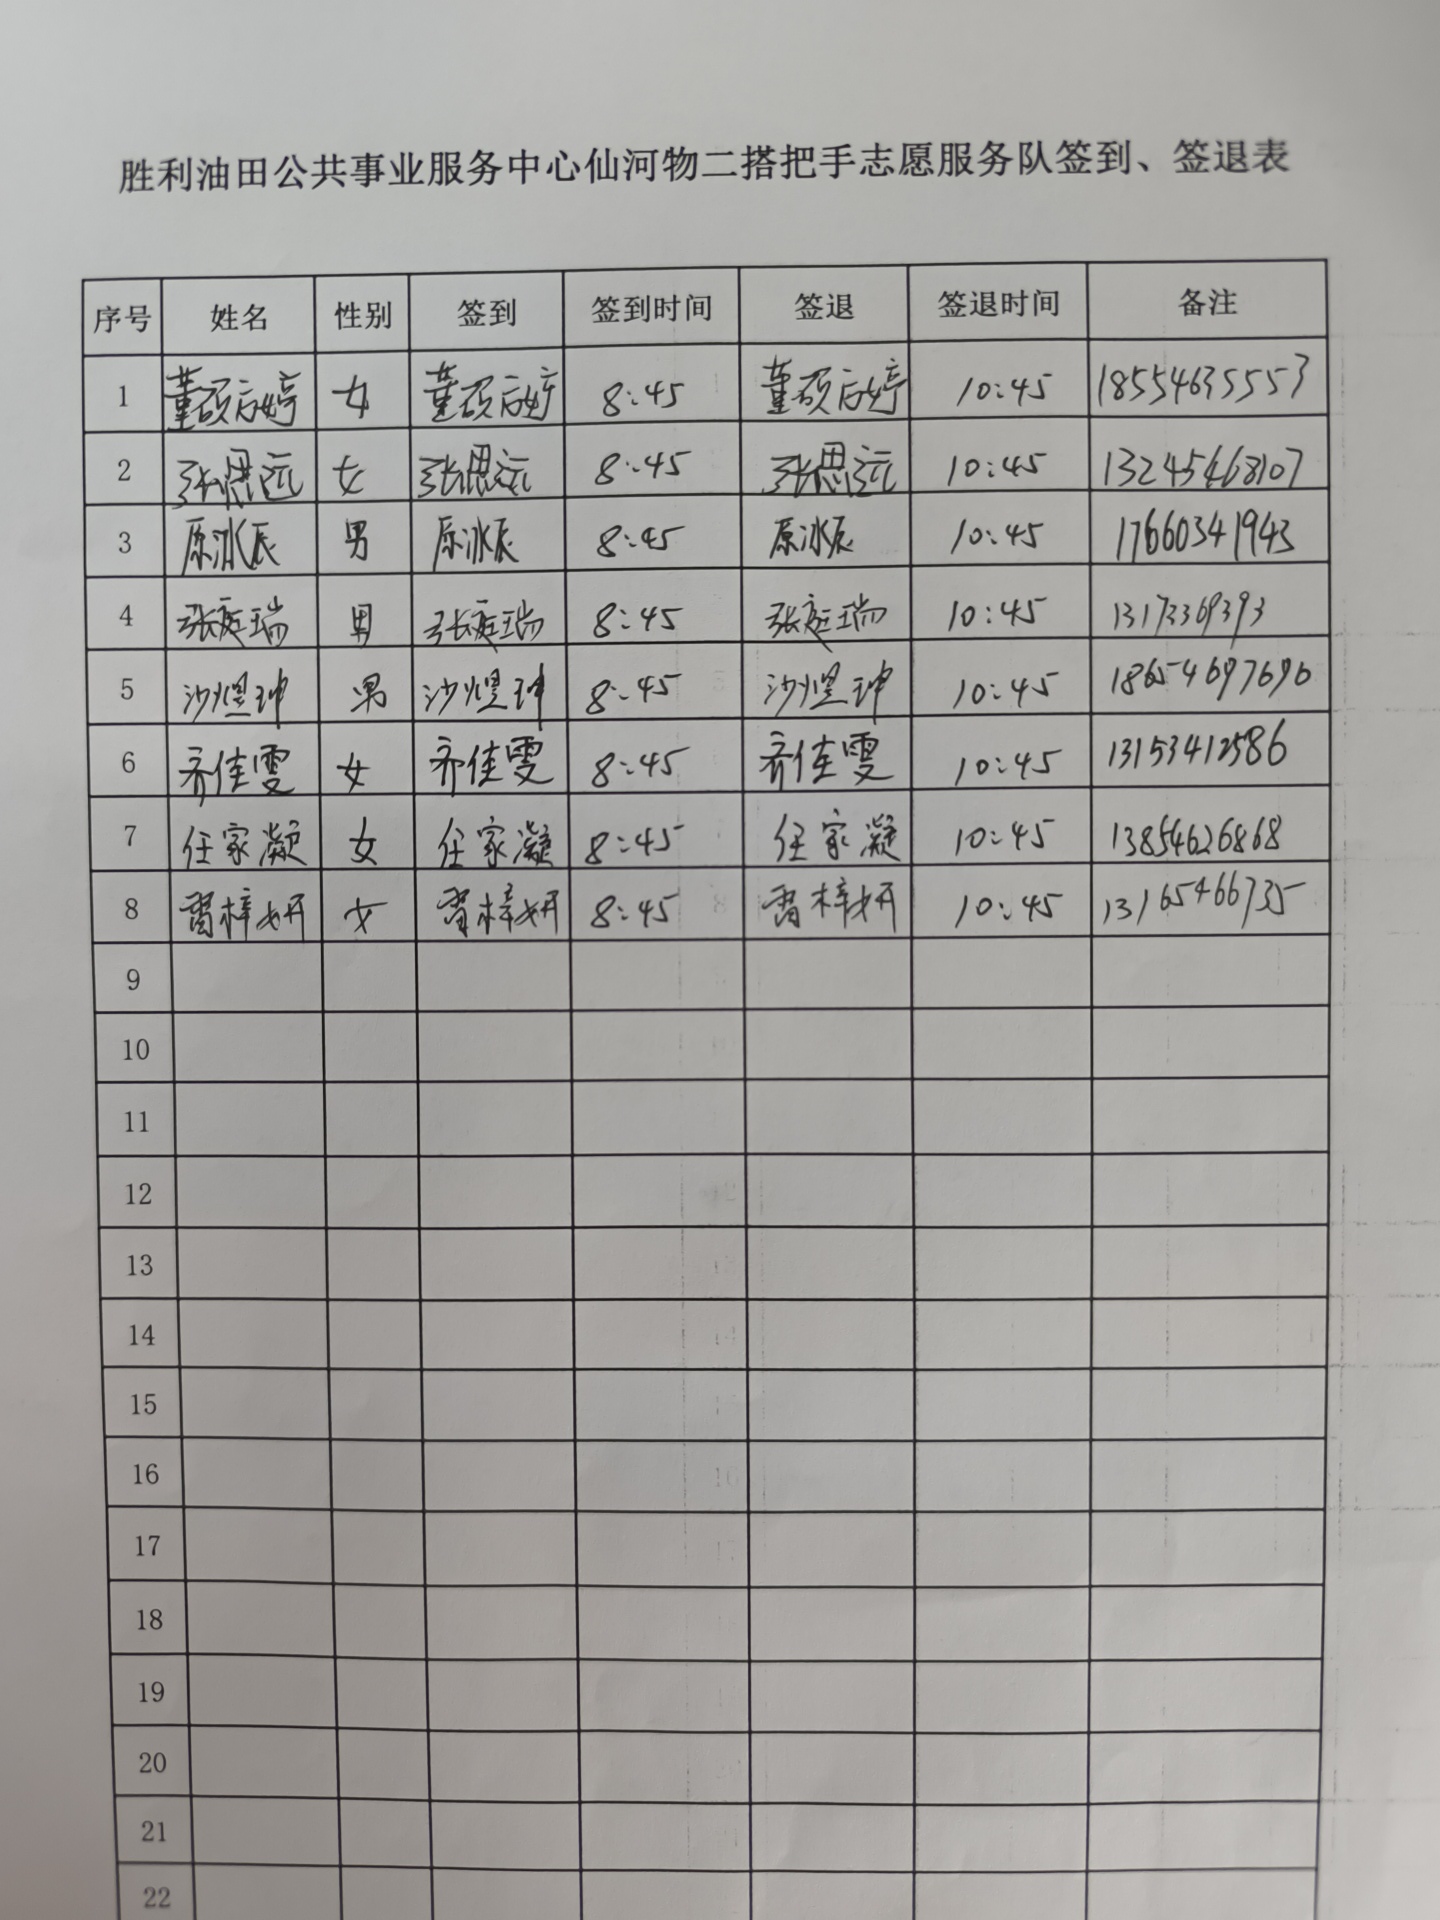 胜利油田公共事业服务中心仙河物二搭把手志愿服务队签到、签退表
序号 姓名 性别 签到 签到时间 签退 签退时间 备注
1 董硕 婷 女 董硕 婷 8:45 董硕 婷 10:45 18554635553
2 张思远 女 张思远 8:45 张思远 10:45 13245468107
3 原冰辰 男 原冰辰 8:45 原冰辰 10:45 17660341943
4 张庭瑞 男 张庭瑞 8:45 张庭瑞 10:45 13173369393
5 沙煜珅 男 沙煜珅 8:45 沙煜珅 10:45 18654697696
6 齐佳雯 女 齐佳雯 8:45 齐佳雯 10:45 13153412586
7 任家凝 女 任家凝 8:45 任家凝 10:45 13854626868
8 梓妍 女 梓妍 8:45 梓妍 10:45 13165466735
9
10
11
12
13
14
15
16
17
18
19
20
21
22